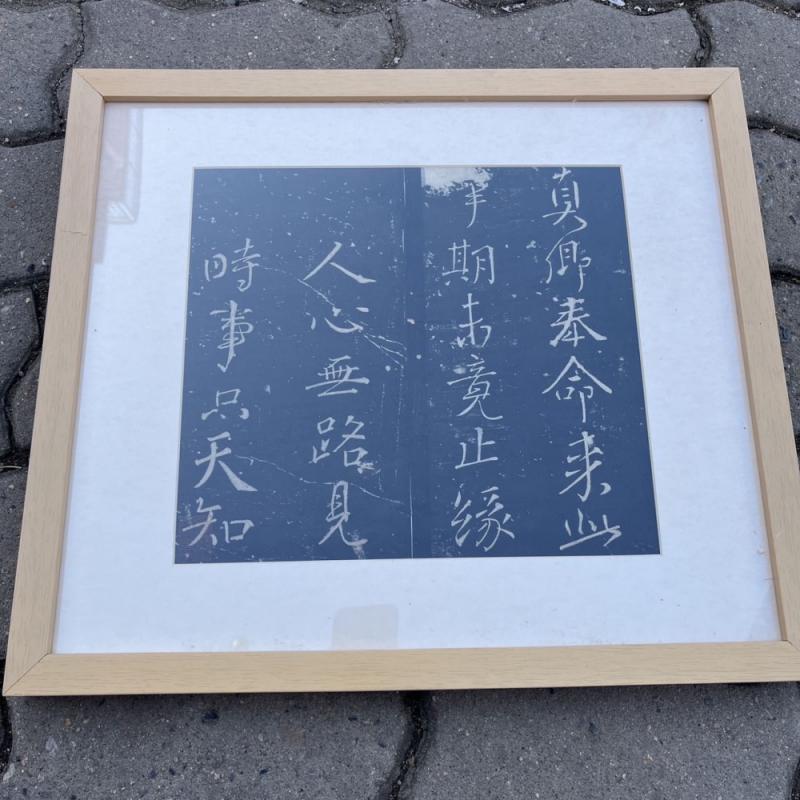 真卿奉命来此
事期未竟止緣
人心無路見
時事只天知